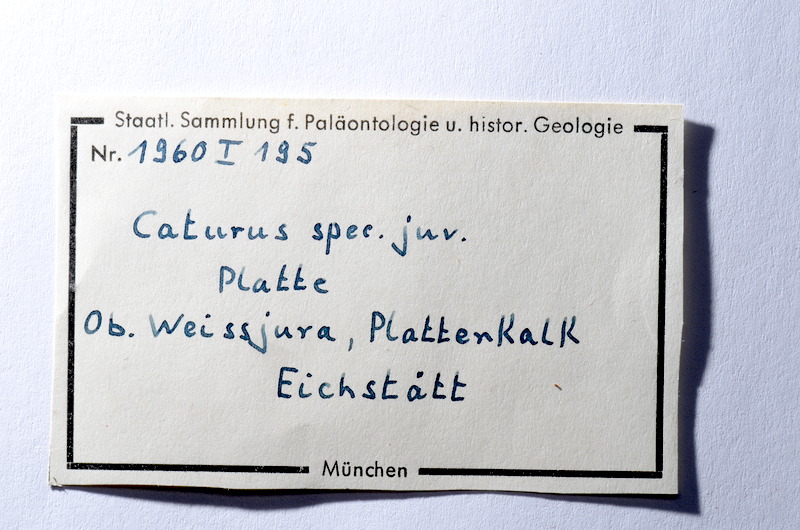 Staatl. Sammlung f. Paläontologie u. histor. Geologie
Nr. 1960 I 195
Caturus spec. juv.
Platte
Ob. Weissjura, Plattenkalk
Eichstätt
München